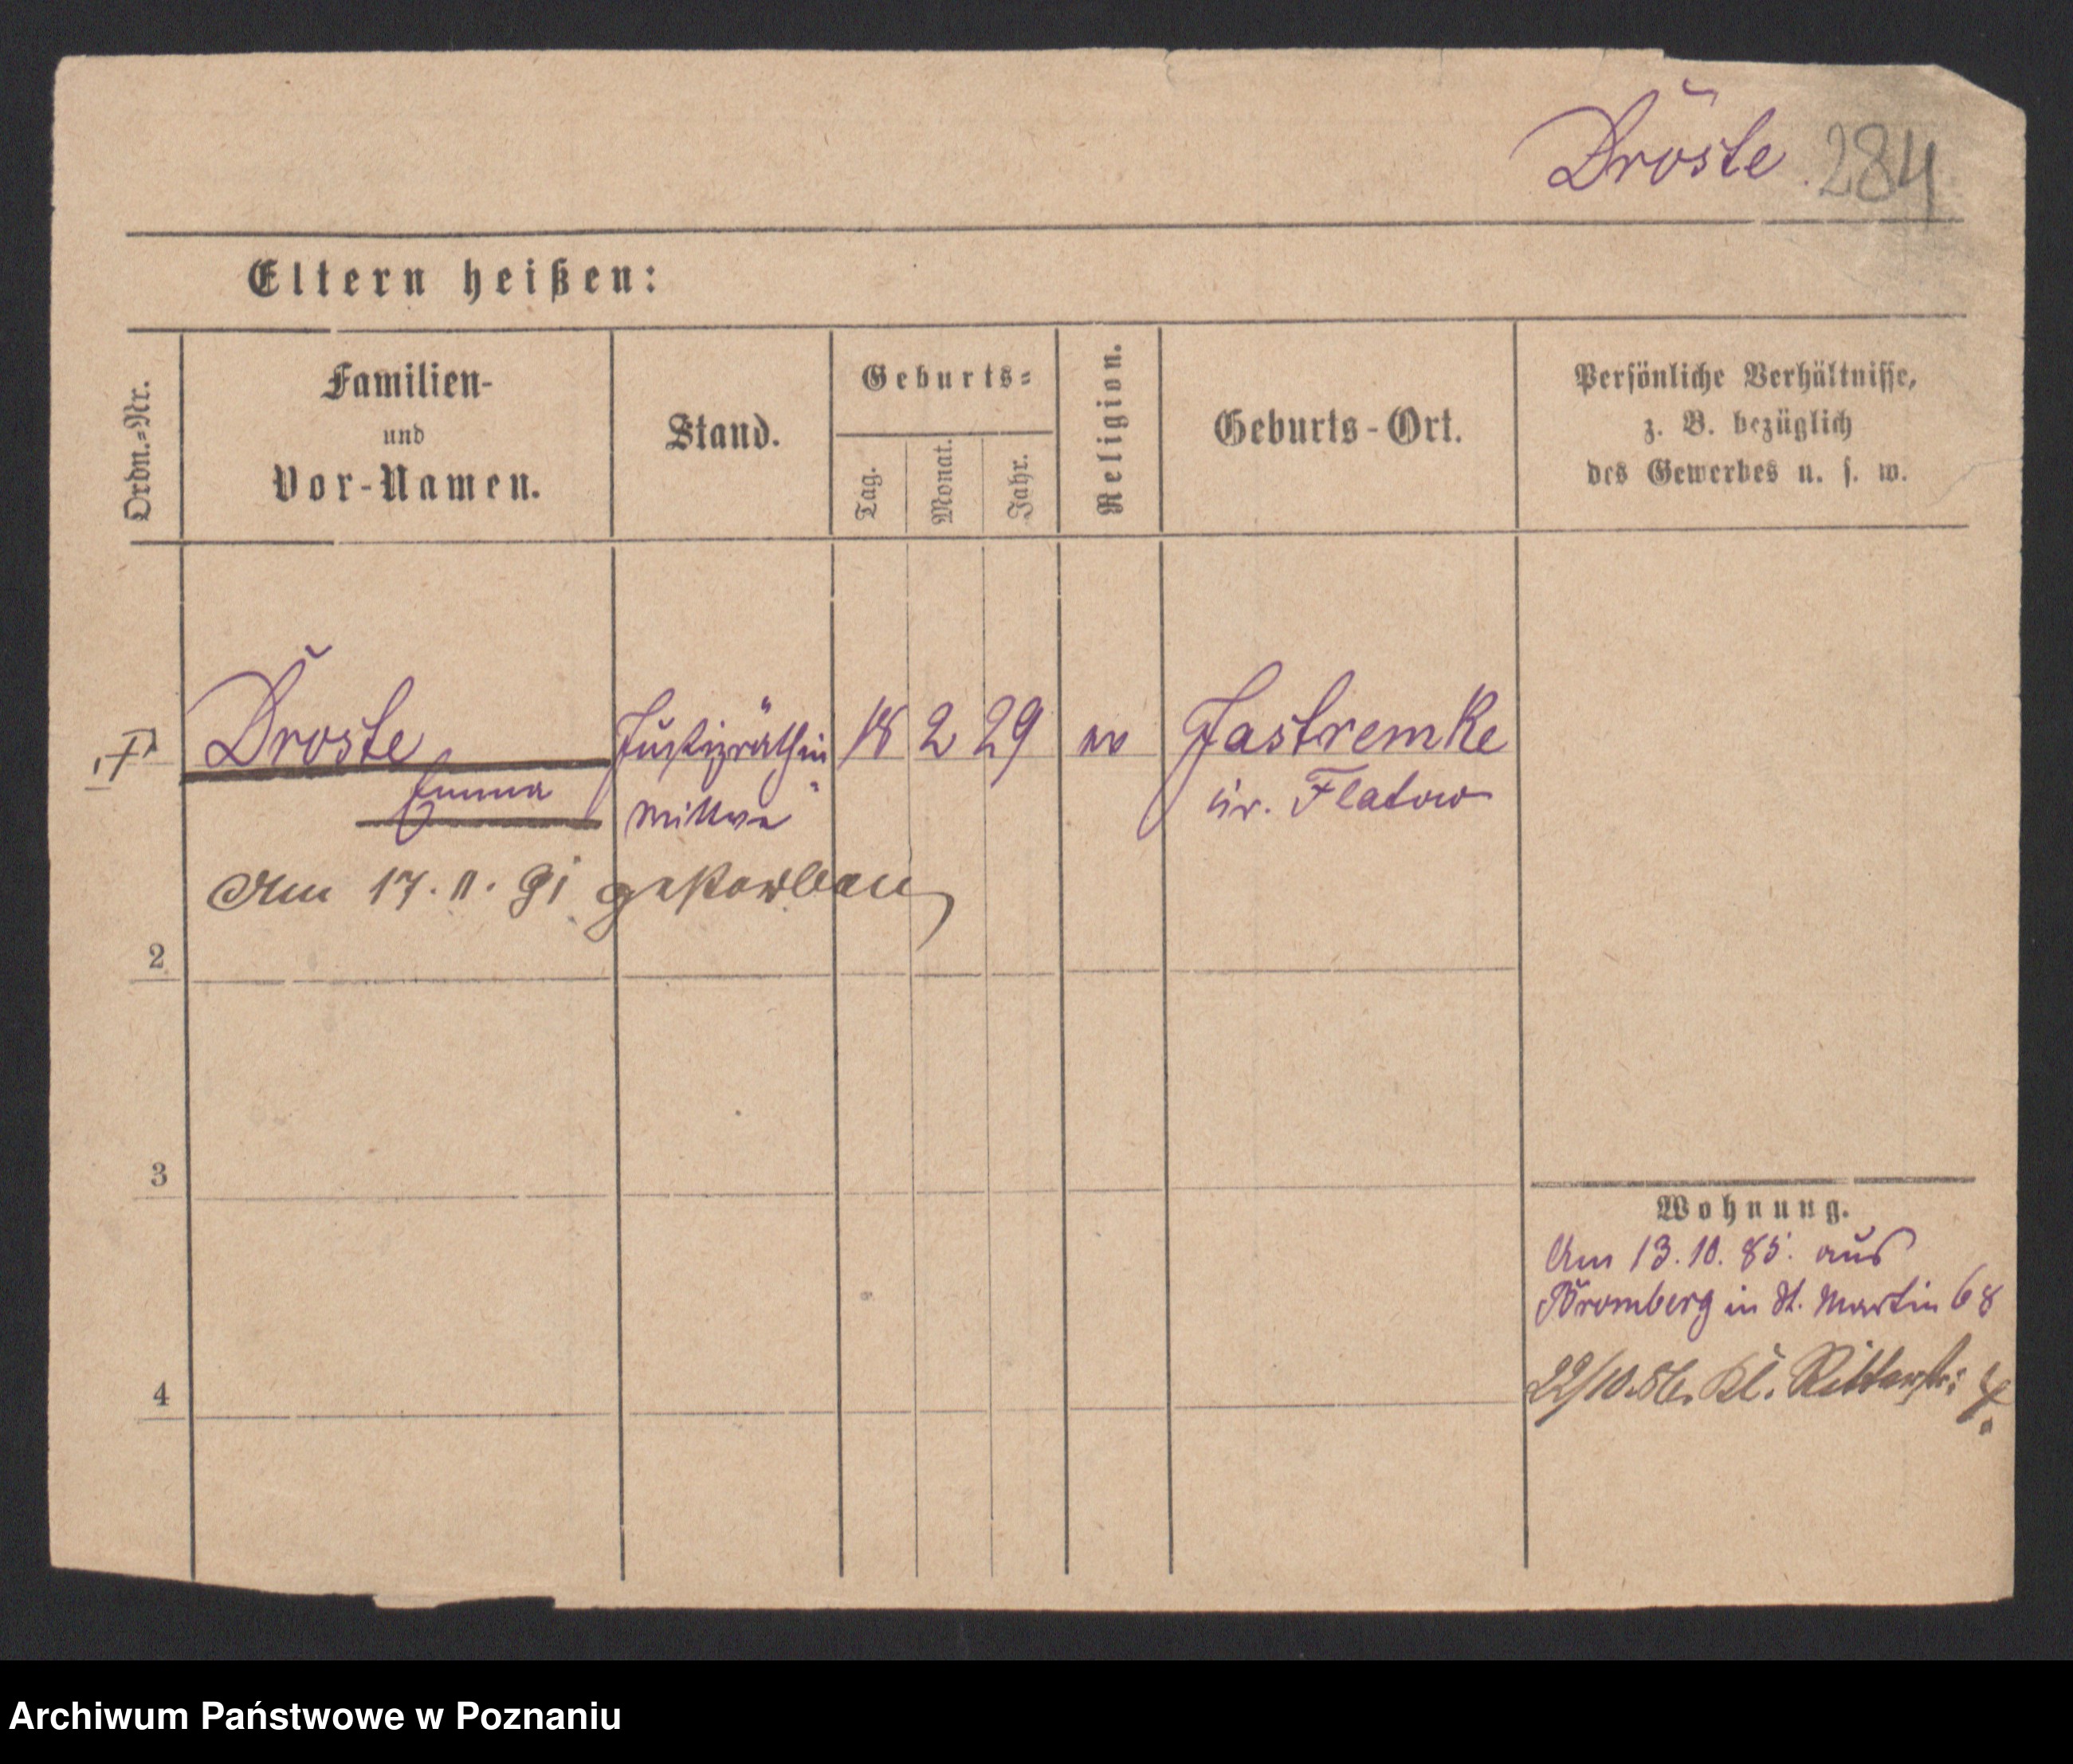 Droste 284
Eltern heißen:
Ordn.-Nr.
Familien-
und
Vor-Namen.
Stand.
Geburts-
Tag.
Monat.
Jahr.
Religion.
Geburts-Ort.
Persönliche Verhältnisse,
z. B. bezüglich
des Gewerbes u. s. w.
Droste Justizräthin 18 2 29 ev Jastremke
Emma Wittwe Kr. Flatow
Am 17. 11. 91 gestorben
2
3
4
Wohnung.
Am 13.10.85. aus
Bromberg in St. Martin 68
22/10.86. Kl. Ritterstr:
Archiwum Państwowe w Poznaniu